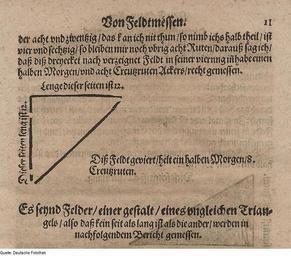 Von Feldtmessen. 11
der acht vnd zwentzig / das kan ich nit thun / so nimb ichs halb theil / ist
vier vnd sechtzig / so bleiben mir noch vbrig acht Ruten / darauß sag ich /
daß diß dreyecket nach verzeignet Feldt in seiner vierung inhabe einen
halben Morgen / vnd acht Creutzruten Ackers / recht gemessen.
Leng dieser seiten ist 12.
Dieser seiten leng ist 12.
Diß Feldt geviert / helt ein halben Morgen / 8.
Creutzruten.
Es seynd Felder / einer gestalt / eines vngleichen Trian-
gels / also daß kein seit als lang ist als die ander / werden in
nachfolgendem Bericht gemessen.
Quelle: Deutsche Fotothek